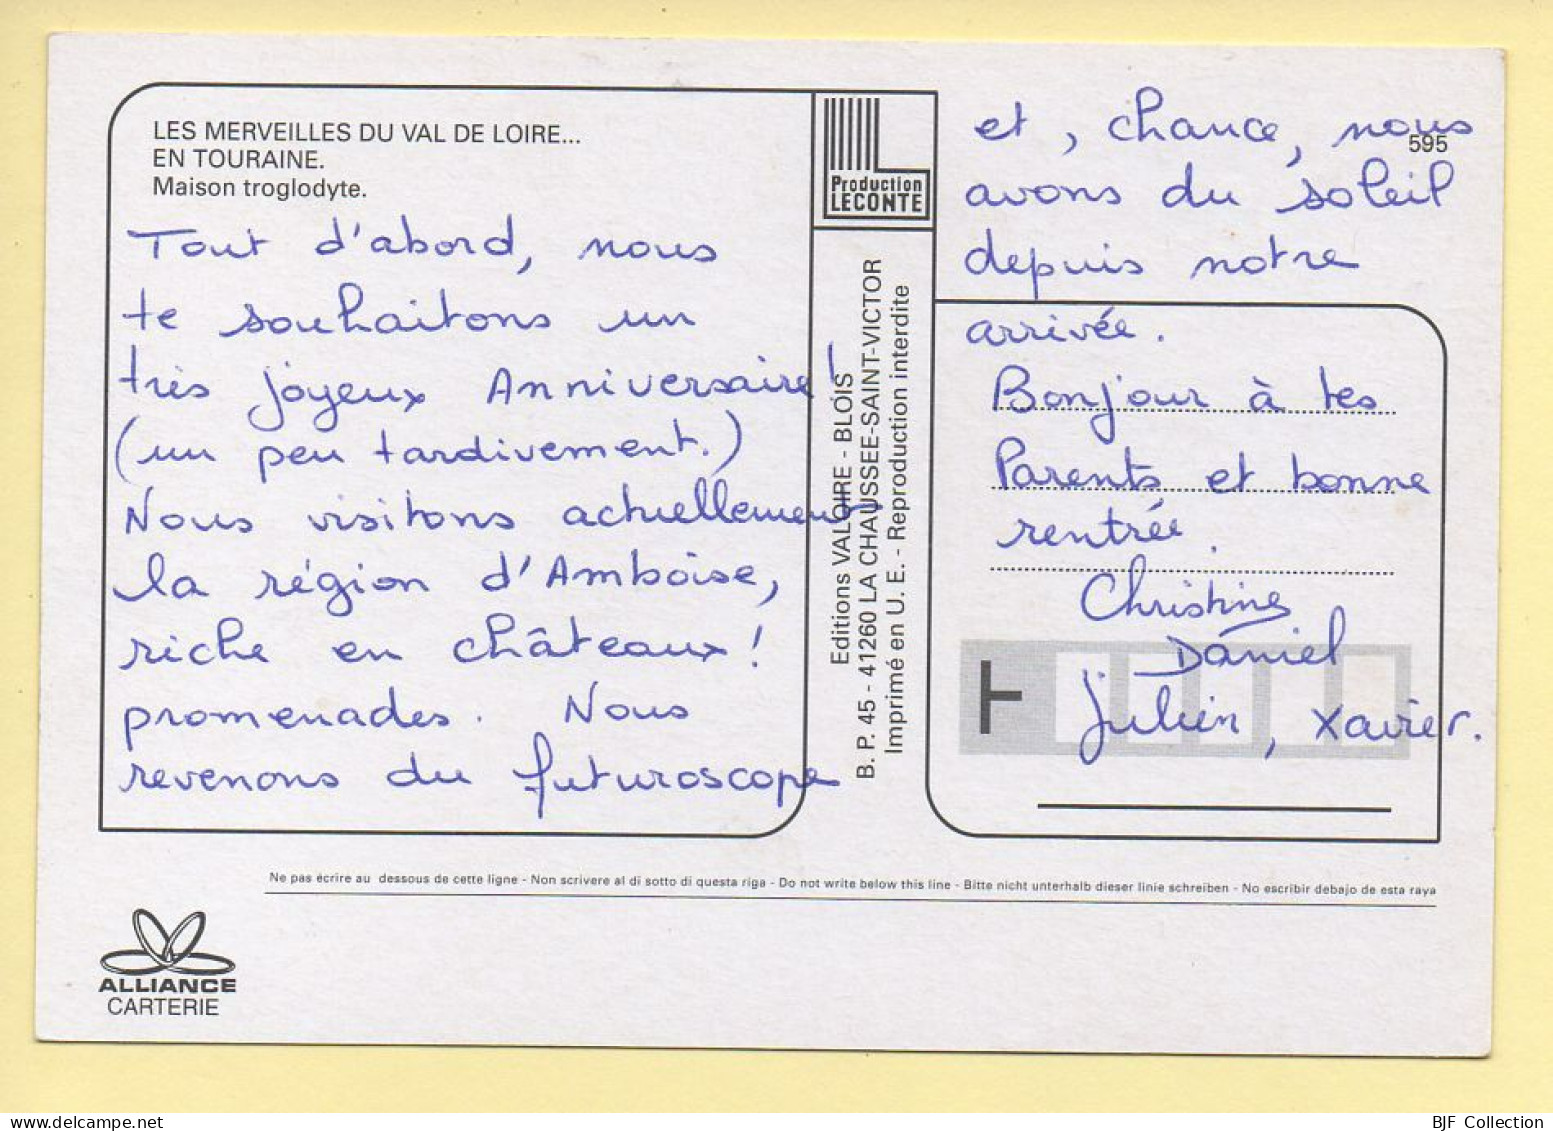 LES MERVEILLES DU VAL DE LOIRE...
EN TOURAINE.
Maison troglodyte.
Tout d'abord, nous
te souhaitons un
très joyeux Anniversaire!
(un peu tardivement.)
Nous visitons actuellement
la région d'Amboise,
riche en châteaux !
promenades. Nous
revenons du futuroscope
Production
LECONTE
Editions VALOIRE - BLOIS
B. P. 45 - 41260 LA CHAUSSEE-SAINT-VICTOR
Imprimé en U. E. - Reproduction interdite
595
et, chance, nous
avons du soleil
depuis notre
arrivée.
Bonjour à tes
Parents et bonne
rentrée.
Christine
Daniel
Julien, Xavier.
Ne pas écrire au dessous de cette ligne - Non scrivere al di sotto di questa riga - Do not write below this line - Bitte nicht unterhalb dieser linie schreiben - No escribir debajo de esta raya
ALLIANCE
CARTERIE
BJF Collection